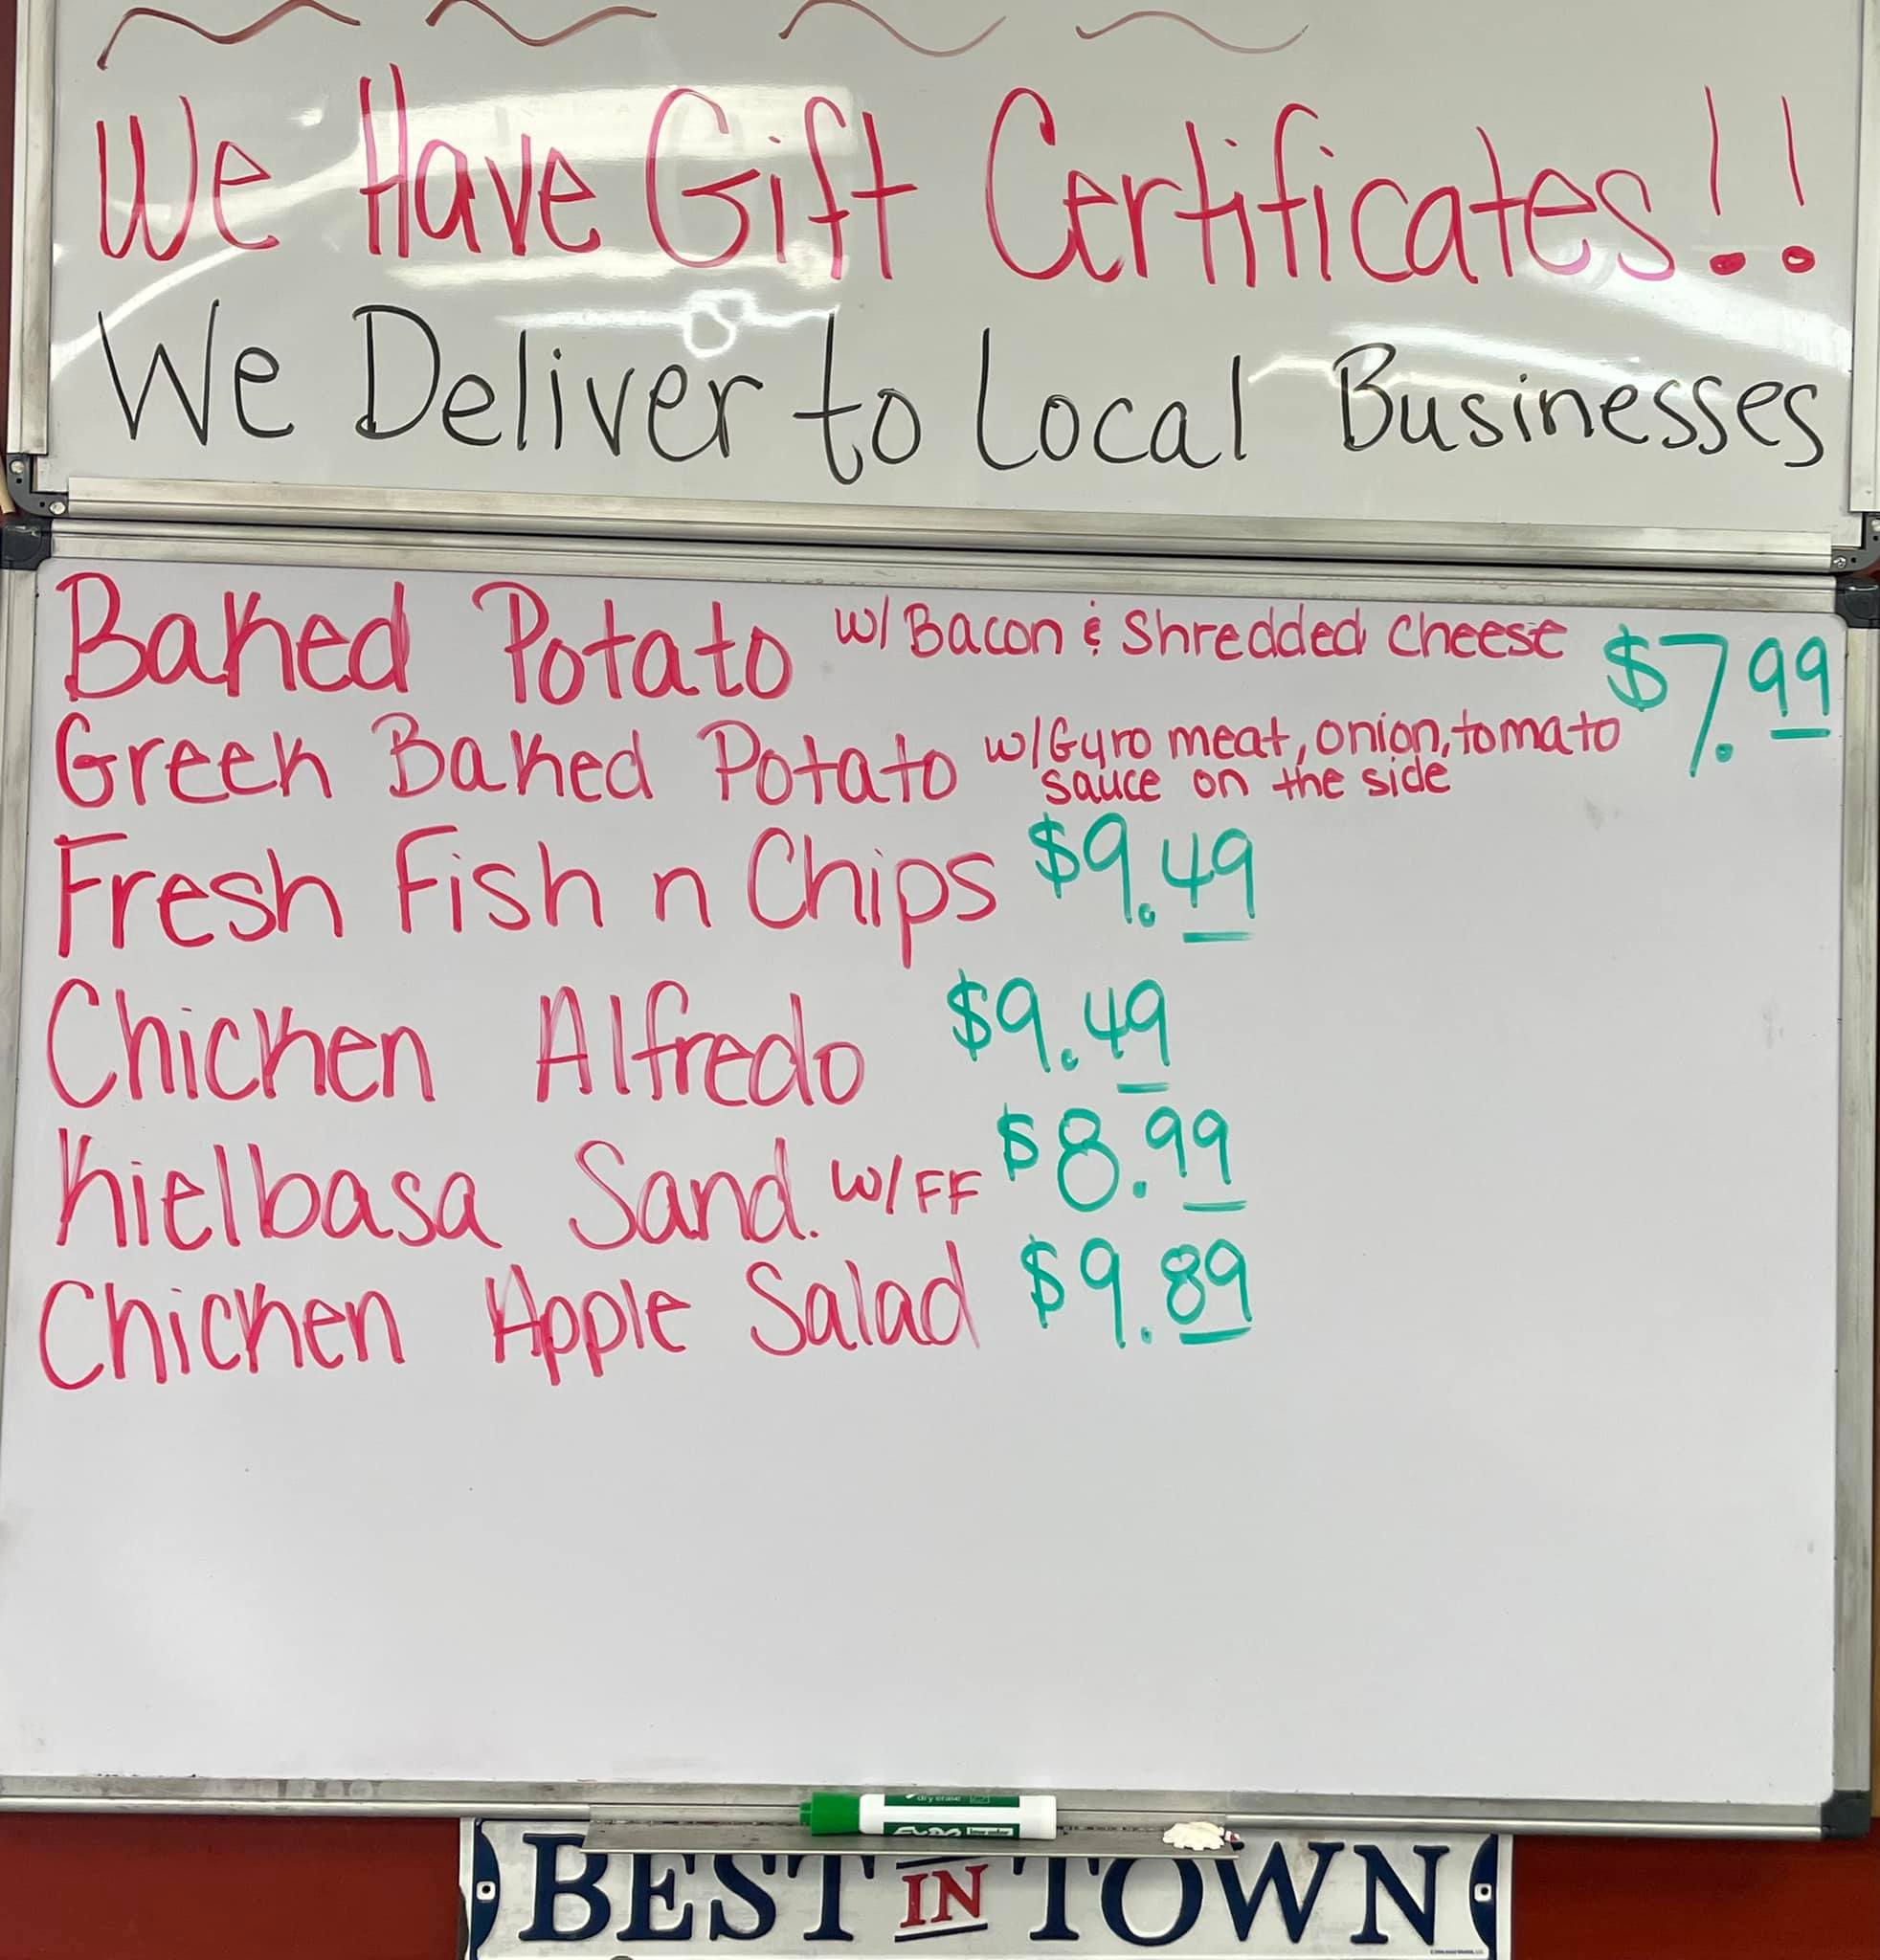 We Have Gift Certificates!!
We Deliver to Local Businesses
Baked Potato w/ Bacon & Shredded Cheese $7.99
Greek Baked Potato w/Gyro meat, onion, tomato
sauce on the side
Fresh Fish n Chips $9.49
Chicken Alfredo $9.49
Kielbasa Sand. w/FF $8.99
Chicken Apple Salad $9.89
dry erase
EXPO
BEST IN TOWN